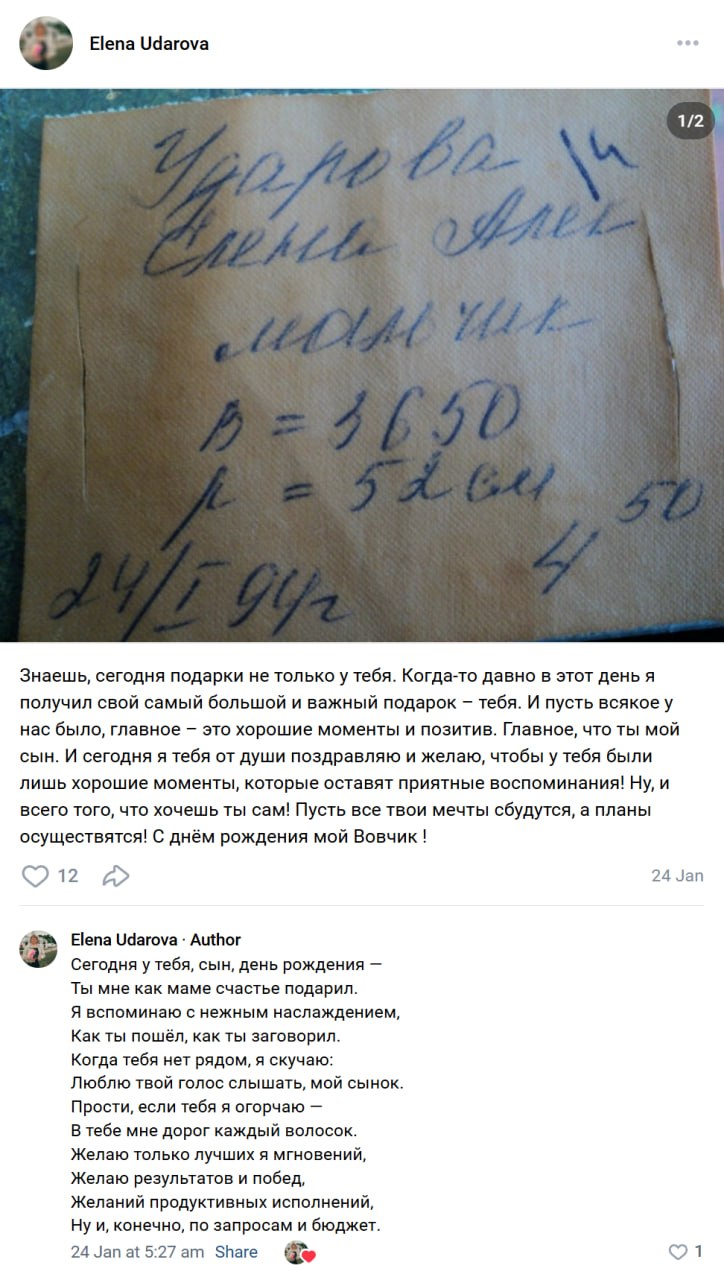 Elena Udarova
1/2
Ударова
14
Елена Алек
мальчик
В = 3650
р = 52 см
50
4
24/I 94г
Знаешь, сегодня подарки не только у тебя. Когда-то давно в этот день я
получил свой самый большой и важный подарок – тебя. И пусть всякое у
нас было, главное – это хорошие моменты и позитив. Главное, что ты мой
сын. И сегодня я тебя от души поздравляю и желаю, чтобы у тебя были
лишь хорошие моменты, которые оставят приятные воспоминания! Ну, и
всего того, что хочешь ты сам! Пусть все твои мечты сбудутся, а планы
осуществятся! С днём рождения мой Вовчик !
12
24 Jan
Elena Udarova · Author
Сегодня у тебя, сын, день рождения —
Ты мне как маме счастье подарил.
Я вспоминаю с нежным наслаждением,
Как ты пошёл, как ты заговорил.
Когда тебя нет рядом, я скучаю:
Люблю твой голос слышать, мой сынок.
Прости, если тебя я огорчаю —
В тебе мне дорог каждый волосок.
Желаю только лучших я мгновений,
Желаю результатов и побед,
Желаний продуктивных исполнений,
Ну и, конечно, по запросам и бюджет.
24 Jan at 5:27 am Share
1